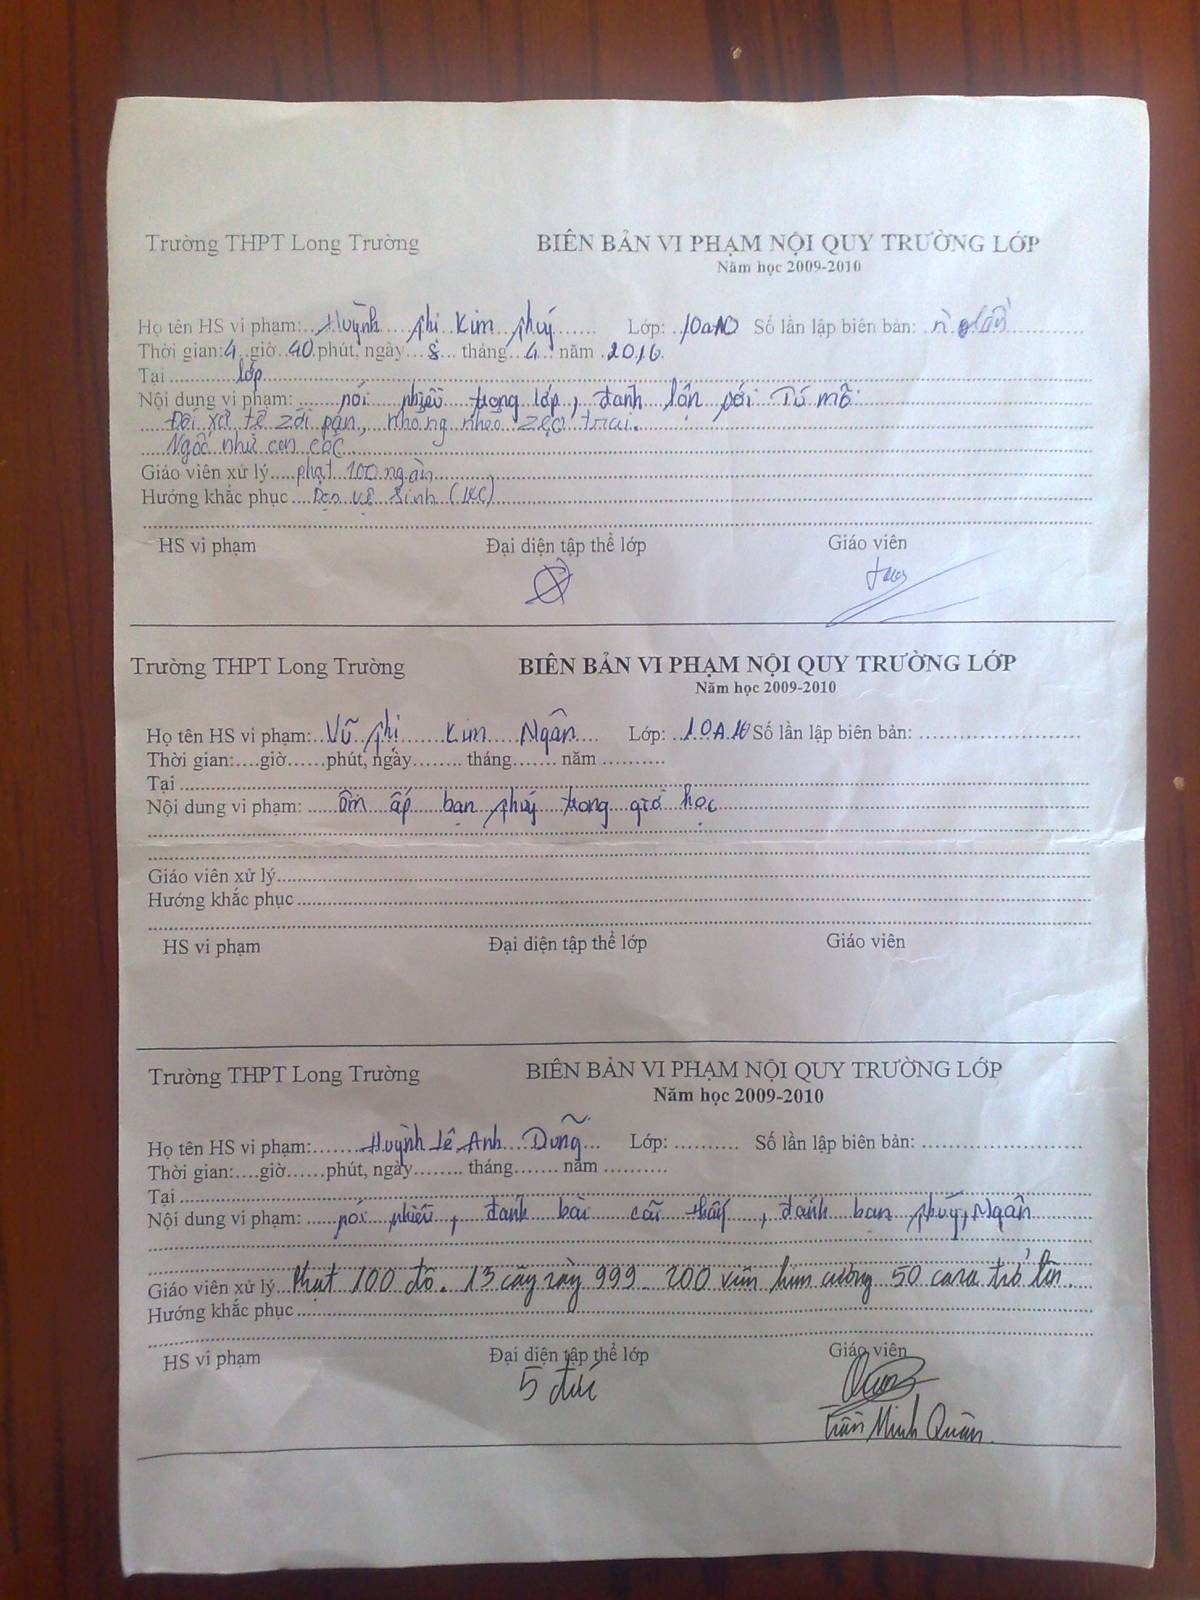 Trường THPT Long Trường BIÊN BẢN VI PHẠM NỘI QUY TRƯỜNG LỚP
Năm học 2009-2010
Họ tên HS vi phạm: Huỳnh Thị Kim Thuý Lớp: 10a10 Số lần lập biên bản: n lần
Thời gian: 4 giờ 40 phút, ngày 8 tháng 4 năm 2016
Tại lớp
Nội dung vi phạm: nói nhiều trong lớp, đánh lộn với Tú mỡ
Đối xử tệ zới pạn, nhõng nhẽo zẹo trai.
Ngốc như con cóc
Giáo viên xử lý phạt 100 ngàn
Hướng khắc phục Dọn vệ sinh (WC)
HS vi phạm Đại diện tập thể lớp Giáo viên
Trường THPT Long Trường BIÊN BẢN VI PHẠM NỘI QUY TRƯỜNG LỚP
Năm học 2009-2010
Họ tên HS vi phạm: Vũ Thị Kim Ngân Lớp: 10A10 Số lần lập biên bản:
Thời gian: giờ phút, ngày tháng năm
Tại
Nội dung vi phạm: ôm ấp bạn Thuý trong giờ học
Giáo viên xử lý
Hướng khắc phục
HS vi phạm Đại diện tập thể lớp Giáo viên
Trường THPT Long Trường BIÊN BẢN VI PHẠM NỘI QUY TRƯỜNG LỚP
Năm học 2009-2010
Họ tên HS vi phạm: Huỳnh Lê Anh Dũng Lớp: Số lần lập biên bản:
Thời gian: giờ phút, ngày tháng năm
Tại
Nội dung vi phạm: nói nhiều, đánh bài cãi thầy, đánh bạn Thuý, Ngân
Giáo viên xử lý Phạt 100 đô. 13 cây zàng 999 - 200 viên kim cương 50 cara trở lên.
Hướng khắc phục
HS vi phạm Đại diện tập thể lớp Giáo viên
5 đức
Trần Minh Quân